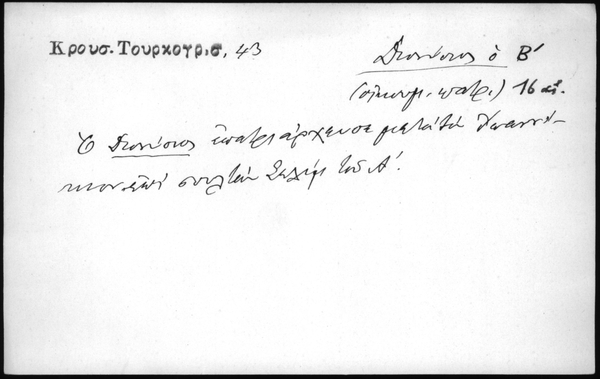 Κρους. Τουρκογρ. σ. 43
Διονύσιος ὁ Β'
(οἰκουμ. πατρ.) 16 αἰ.
Ὁ Διονύσιος ἐπατριάρχευσε μετὰ τὸν Ἰωαννί-
κιον ἐπὶ σουλτὰν Σελὴμ τοῦ Α'.